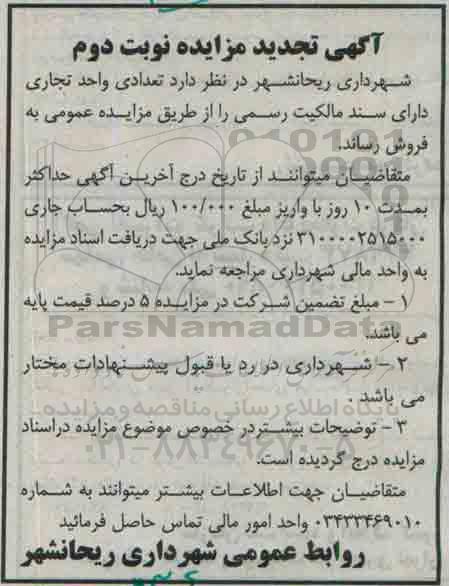 آگهی تجدید مزایده نوبت دوم
شهرداری ریحانشهر در نظر دارد تعدادی واحد تجاری
دارای سند مالکیت رسمی را از طریق مزایده عمومی به
فروش رساند.
متقاضیان میتوانند از تاریخ درج آخرین آگهی حداکثر
بمدت ۱۰ روز با واریز مبلغ ۱۰۰/۰۰۰ ریال بحساب جاری
۳۱۰۰۰۰۲۵۱۵۰۰۰ نزد بانک ملی جهت دریافت اسناد مزایده
به واحد مالی شهرداری مراجعه نماید.
۱ – مبلغ تضمین شرکت در مزایده ۵ درصد قیمت پایه
ParsNamadData
می باشد.
۲ – شهرداری در رد یا قبول پیشنهادات مختار
می باشد .
پایگاه اطلاع رسانی مناقصه و مزایده
۳ – توضیحات بیشتردر خصوص موضوع مزایده دراسناد
۰۲۱-۸۸۳۴۹۶۷۰-۵
مزایده درج گردیده است.
متقاضیان جهت اطلاعات بیشتر میتوانند به شماره
۰۳۴۳۳۴۶۹۰۱۰ واحد امور مالی تماس حاصل فرمائید
روابط عمومی شهرداری ریحانشهر